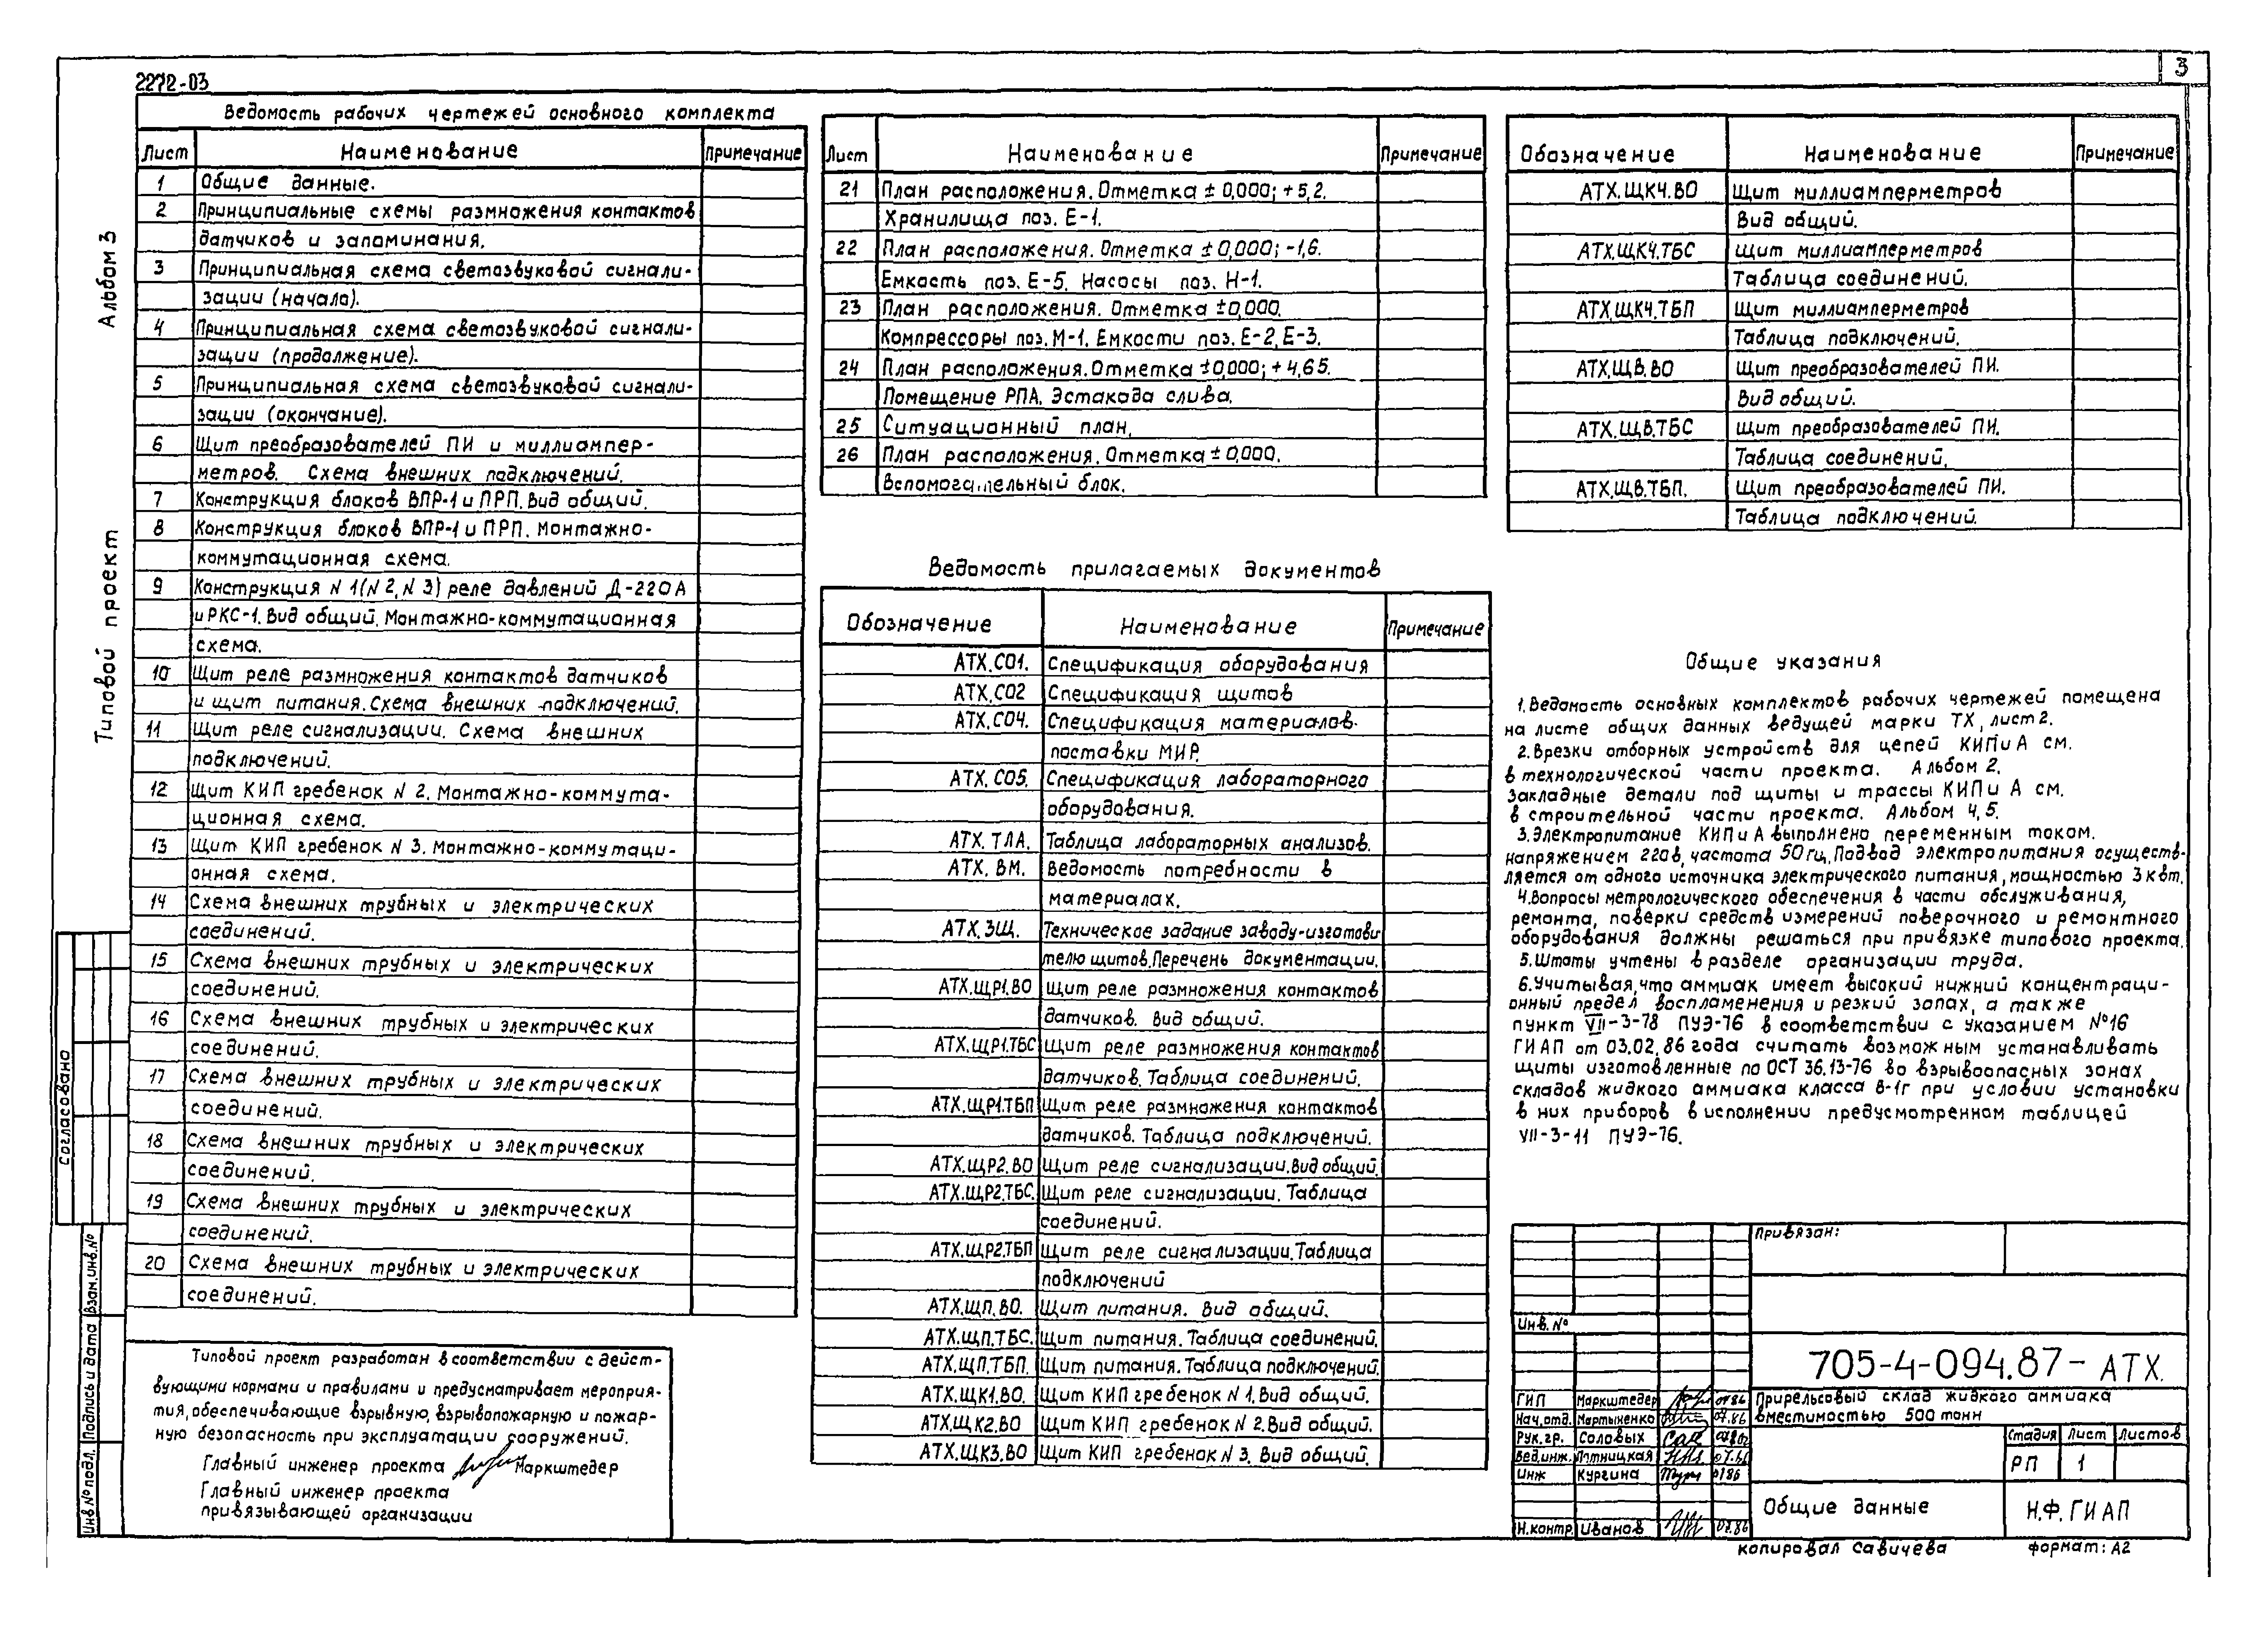 3
2272-03
Альбом 3
Типовой проект
Ведомость рабочих чертежей основного комплекта
Лист Наименование Примечание
1 Общие данные.
2 Принципиальные схемы размножения контактов
датчиков и запоминания.
3 Принципиальная схема светозвуковой сигнали-
зации (начало).
4 Принципиальная схема светозвуковой сигнали-
зации (продолжение).
5 Принципиальная схема светозвуковой сигнали-
зации (окончание).
6 Щит преобразователей ПИ и миллиампер-
метров. Схема внешних подключений.
7 Конструкция блоков ВПР-1 и ПРП. Вид общий.
8 Конструкция блоков ВПР-1 и ПРП. Монтажно-
коммутационная схема.
9 Конструкция N 1(N 2, N 3) реле давлений Д-220А
и РКС-1. Вид общий. Монтажно-коммутационная
схема.
10 Щит реле размножения контактов датчиков
и щит питания. Схема внешних подключений.
11 Щит реле сигнализации. Схема внешних
подключений.
12 Щит КИП гребенок N 2. Монтажно-коммута-
ционная схема.
13 Щит КИП гребенок N 3. Монтажно-коммутаци-
онная схема.
14 Схема внешних трубных и электрических
соединений.
15 Схема внешних трубных и электрических
соединений.
16 Схема внешних трубных и электрических
соединений.
17 Схема внешних трубных и электрических
соединений.
18 Схема внешних трубных и электрических
соединений.
19 Схема внешних трубных и электрических
соединений.
20 Схема внешних трубных и электрических
соединений.
Типовой проект разработан в соответствии с дейст-
вующими нормами и правилами и предусматривает мероприя-
тия, обеспечивающие взрывную, взрывопожарную и пожар-
ную безопасность при эксплуатации сооружений.
Главный инженер проекта Маркштедер
Главный инженер проекта
привязывающей организации
согласовано
Взам.инв.№
Подпись и дата
Инв № подл.
Лист Наименование Примечание
21 План расположения. Отметка ± 0,000; +5,2.
Хранилища поз. Е-1.
22 План расположения. Отметка ± 0,000; -1,6.
Емкость поз. Е-5. Насосы поз. Н-1.
23 План расположения. Отметка ±0,000.
Компрессоры поз. М-1. Емкости поз. Е-2, Е-3.
24 План расположения. Отметка ±0,000; +4,65.
Помещение РПА. Эстакада слива.
25 Ситуационный план.
26 План расположения. Отметка ± 0,000.
Вспомогательный блок.
Ведомость прилагаемых документов
Обозначение Наименование Примечание
АТХ.СО1. Спецификация оборудования
АТХ.СО2 Спецификация щитов
АТХ.СО4. Спецификация материалов
поставки МИР.
АТХ.СО5. Спецификация лабораторного
оборудования.
АТХ.ТЛА. Таблица лабораторных анализов.
АТХ. ВМ. Ведомость потребности в
материалах.
АТХ.ЗЩ. Техническое задание заводу-изготови
телю щитов. Перечень документации.
АТХ.ЩР1.ВО Щит реле размножения контактов
датчиков. Вид общий.
АТХ.ЩР1.ТБС Щит реле размножения контактов
датчиков. Таблица соединений.
АТХ.ЩР1.ТБП Щит реле размножения контактов
датчиков. Таблица подключений.
АТХ.ЩР2.ВО Щит реле сигнализации. Вид общий.
АТХ.ЩР2.ТБС. Щит реле сигнализации. Таблица
соединений.
АТХ.ЩР2.ТБП Щит реле сигнализации. Таблица
подключений
АТХ.ЩП.ВО. Щит питания. Вид общий.
АТХ.ЩП.ТБС. Щит питания. Таблица соединений.
АТХ.ЩП.ТБП. Щит питания. Таблица подключений
АТХ.ЩК1.ВО. Щит КИП гребенок N 1. Вид общий.
АТХ.ЩК2.ВО Щит КИП гребенок N 2. Вид общий.
АТХ.ЩК3.ВО Щит КИП гребенок N 3. Вид общий.
Обозначение Наименование Примечание
АТХ.ЩК4.ВО Щит миллиамперметров
Вид общий.
АТХ.ЩК4.ТБС Щит миллиамперметров
Таблица соединений.
АТХ.ЩК4.ТБП Щит миллиамперметров
Таблица подключений.
АТХ.ЩВ.ВО Щит преобразователей ПИ.
Вид общий.
АТХ.ЩВ.ТБС Щит преобразователей ПИ.
Таблица соединений.
АТХ.ЩВ.ТБП. Щит преобразователей ПИ.
Таблица подключений.
Общие указания
1. Ведомость основных комплектов рабочих чертежей помещена
на листе общих данных ведущей марки ТХ, лист 2.
2. Врезки отборных устройств для цепей КИПиА см.
в технологической части проекта. Альбом 2.
Закладные детали под щиты и трассы КИПи А см.
в строительной части проекта. Альбом 4, 5.
3. Электропитание КИПиА выполнено переменным током.
напряжением 220в, частота 50 гц. Подвод электропитания осуществ-
ляется от одного источника электрического питания, мощностью 3 квт.
4. Вопросы метрологического обеспечения в части обслуживания,
ремонта, поверки средств измерений поверочного и ремонтного
оборудования должны решаться при привязке типового проекта.
5. Штаты учтены в разделе организации труда.
6. Учитывая, что аммиак имеет высокий нижний концентраци-
онный предел воспламенения и резкий запах, а также
пункт VII-3-78 ПУЭ-76 в соответствии с указанием №16
ГИАП от 03.02.86 года считать возможным устанавливать
щиты изготовленные по ОСТ 36.13-76 во взрывоопасных зонах
складов жидкого аммиака класса В-1г при условии установки
в них приборов в исполнении предусмотренном таблицей
VII-3-11 ПУЭ-76.
Привязан:
Инв. №
705-4-094.87- АТХ.
ГИП Маркштедер 07.86
Нач.отд. Мартыненко 07.86
Рук.гр. Соловых
Вед.инж. Пятницкая
Инж Кургина
Н.контр. Иванов 07.86
Прирельсовый склад жидкого аммиака
вместимостью 500 тонн
Стадия Лист Листов
РП 1
Общие данные
Н.Ф. ГИАП
копировал Савичева
формат: А2